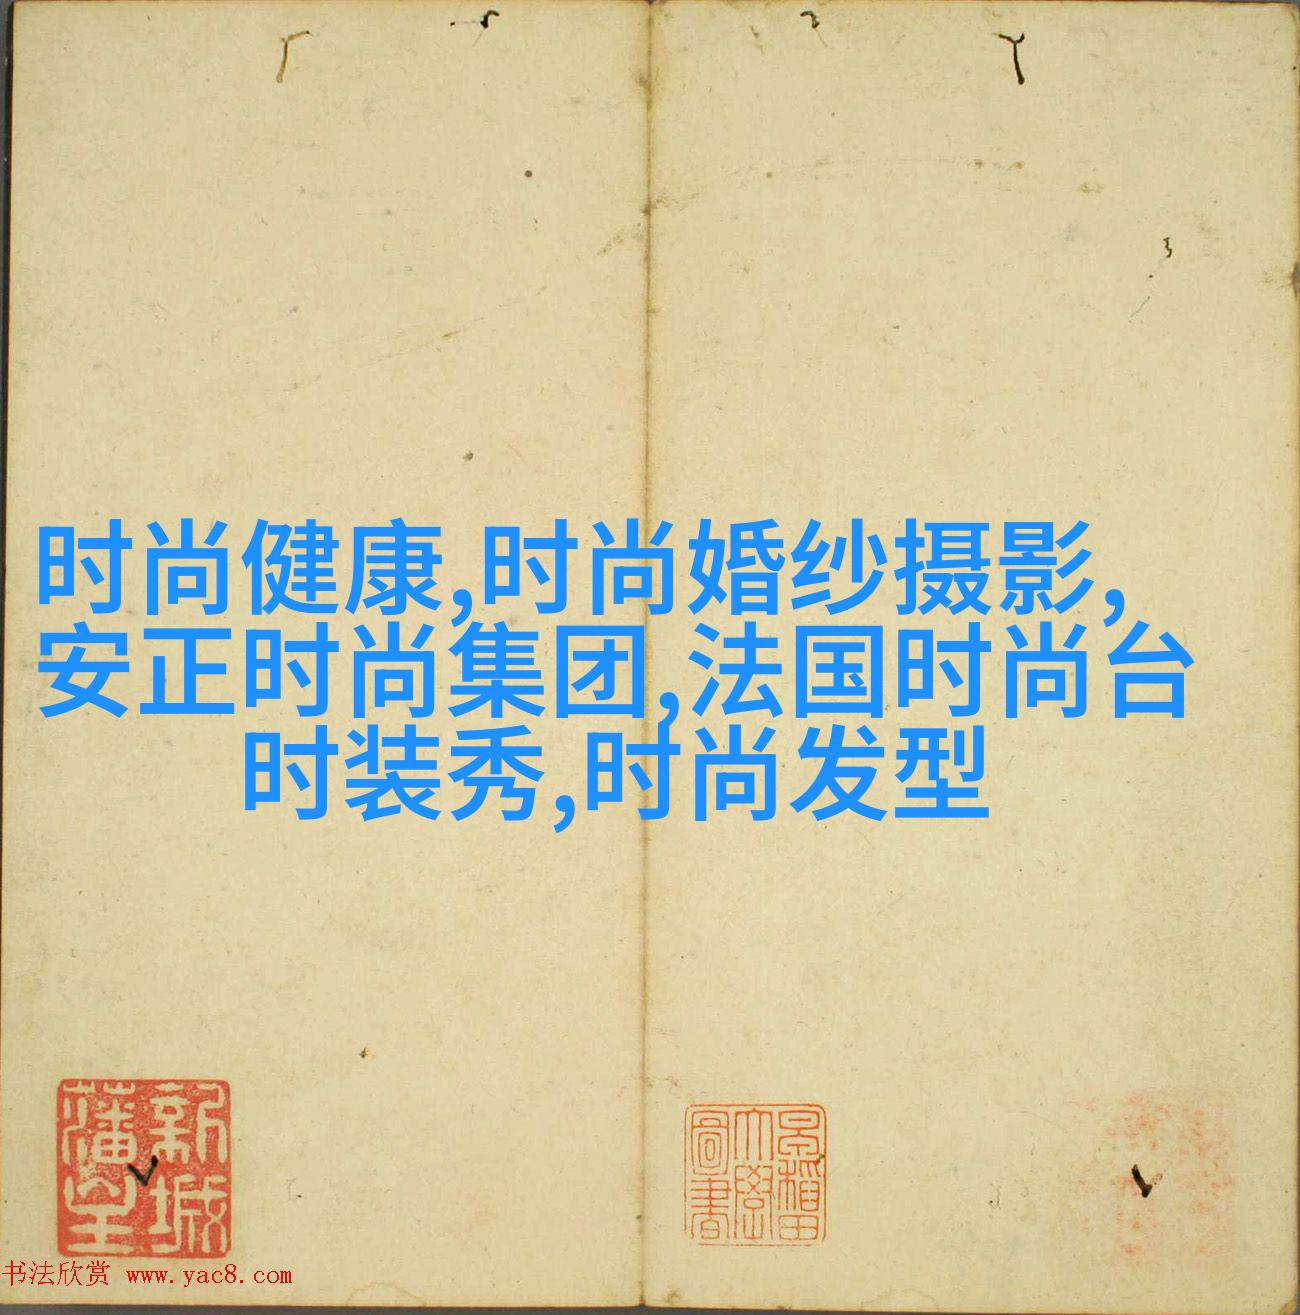 时尚健康,时尚婚纱摄影,
安正时尚集团,法国时尚台
时装秀,时尚发型
新城
藩室
早稻田
大學
圖書
书法欣赏 www.yac8.com